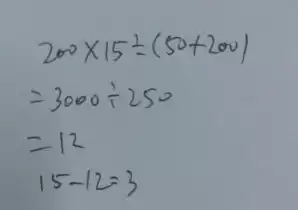 200×15÷(50+200)
=3000÷250
=12
15-12=3